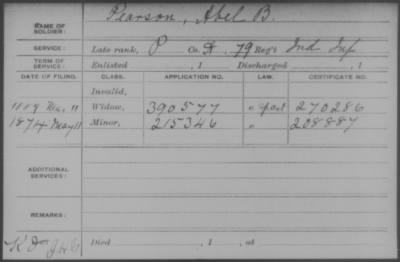 NAME OF SOLDIER: Pearson, Abel B.
SERVICE: Late rank, P Co. A, 79 Reg't Ind Inf
TERM OF SERVICE: Enlisted , 1 Discharged , 1
DATE OF FILING. CLASS. APPLICATION NO. LAW. CERTIFICATE NO.
Invalid,
Widow, 390577 270286
1874 May 11 Minor, 215346 " 208887
ADDITIONAL SERVICES:
REMARKS:
Died , 1 , at